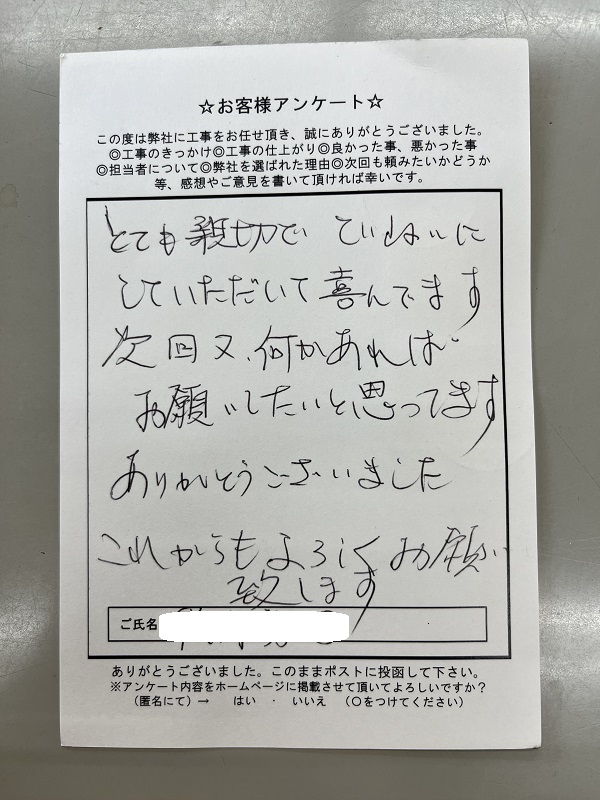 ☆お客様アンケート☆
この度は弊社に工事をお任せ頂き、誠にありがとうございました。
◎工事のきっかけ◎工事の仕上がり◎良かった事、悪かった事
◎担当者について◎弊社を選ばれた理由◎次回も頼みたいかどうか
等、感想やご意見を書いて頂ければ幸いです。
とても親切で ていねいに
していただいて喜んでます
次回又、何かあれば
お願いしたいと思ってます
ありがとうございました
これからもよろしくお願い
致します
ご氏名
ありがとうございました。このままポストに投函して下さい。
※アンケート内容をホームページに掲載させて頂いてよろしいですか？
（匿名にて）→ はい ・ いいえ （○をつけてください）